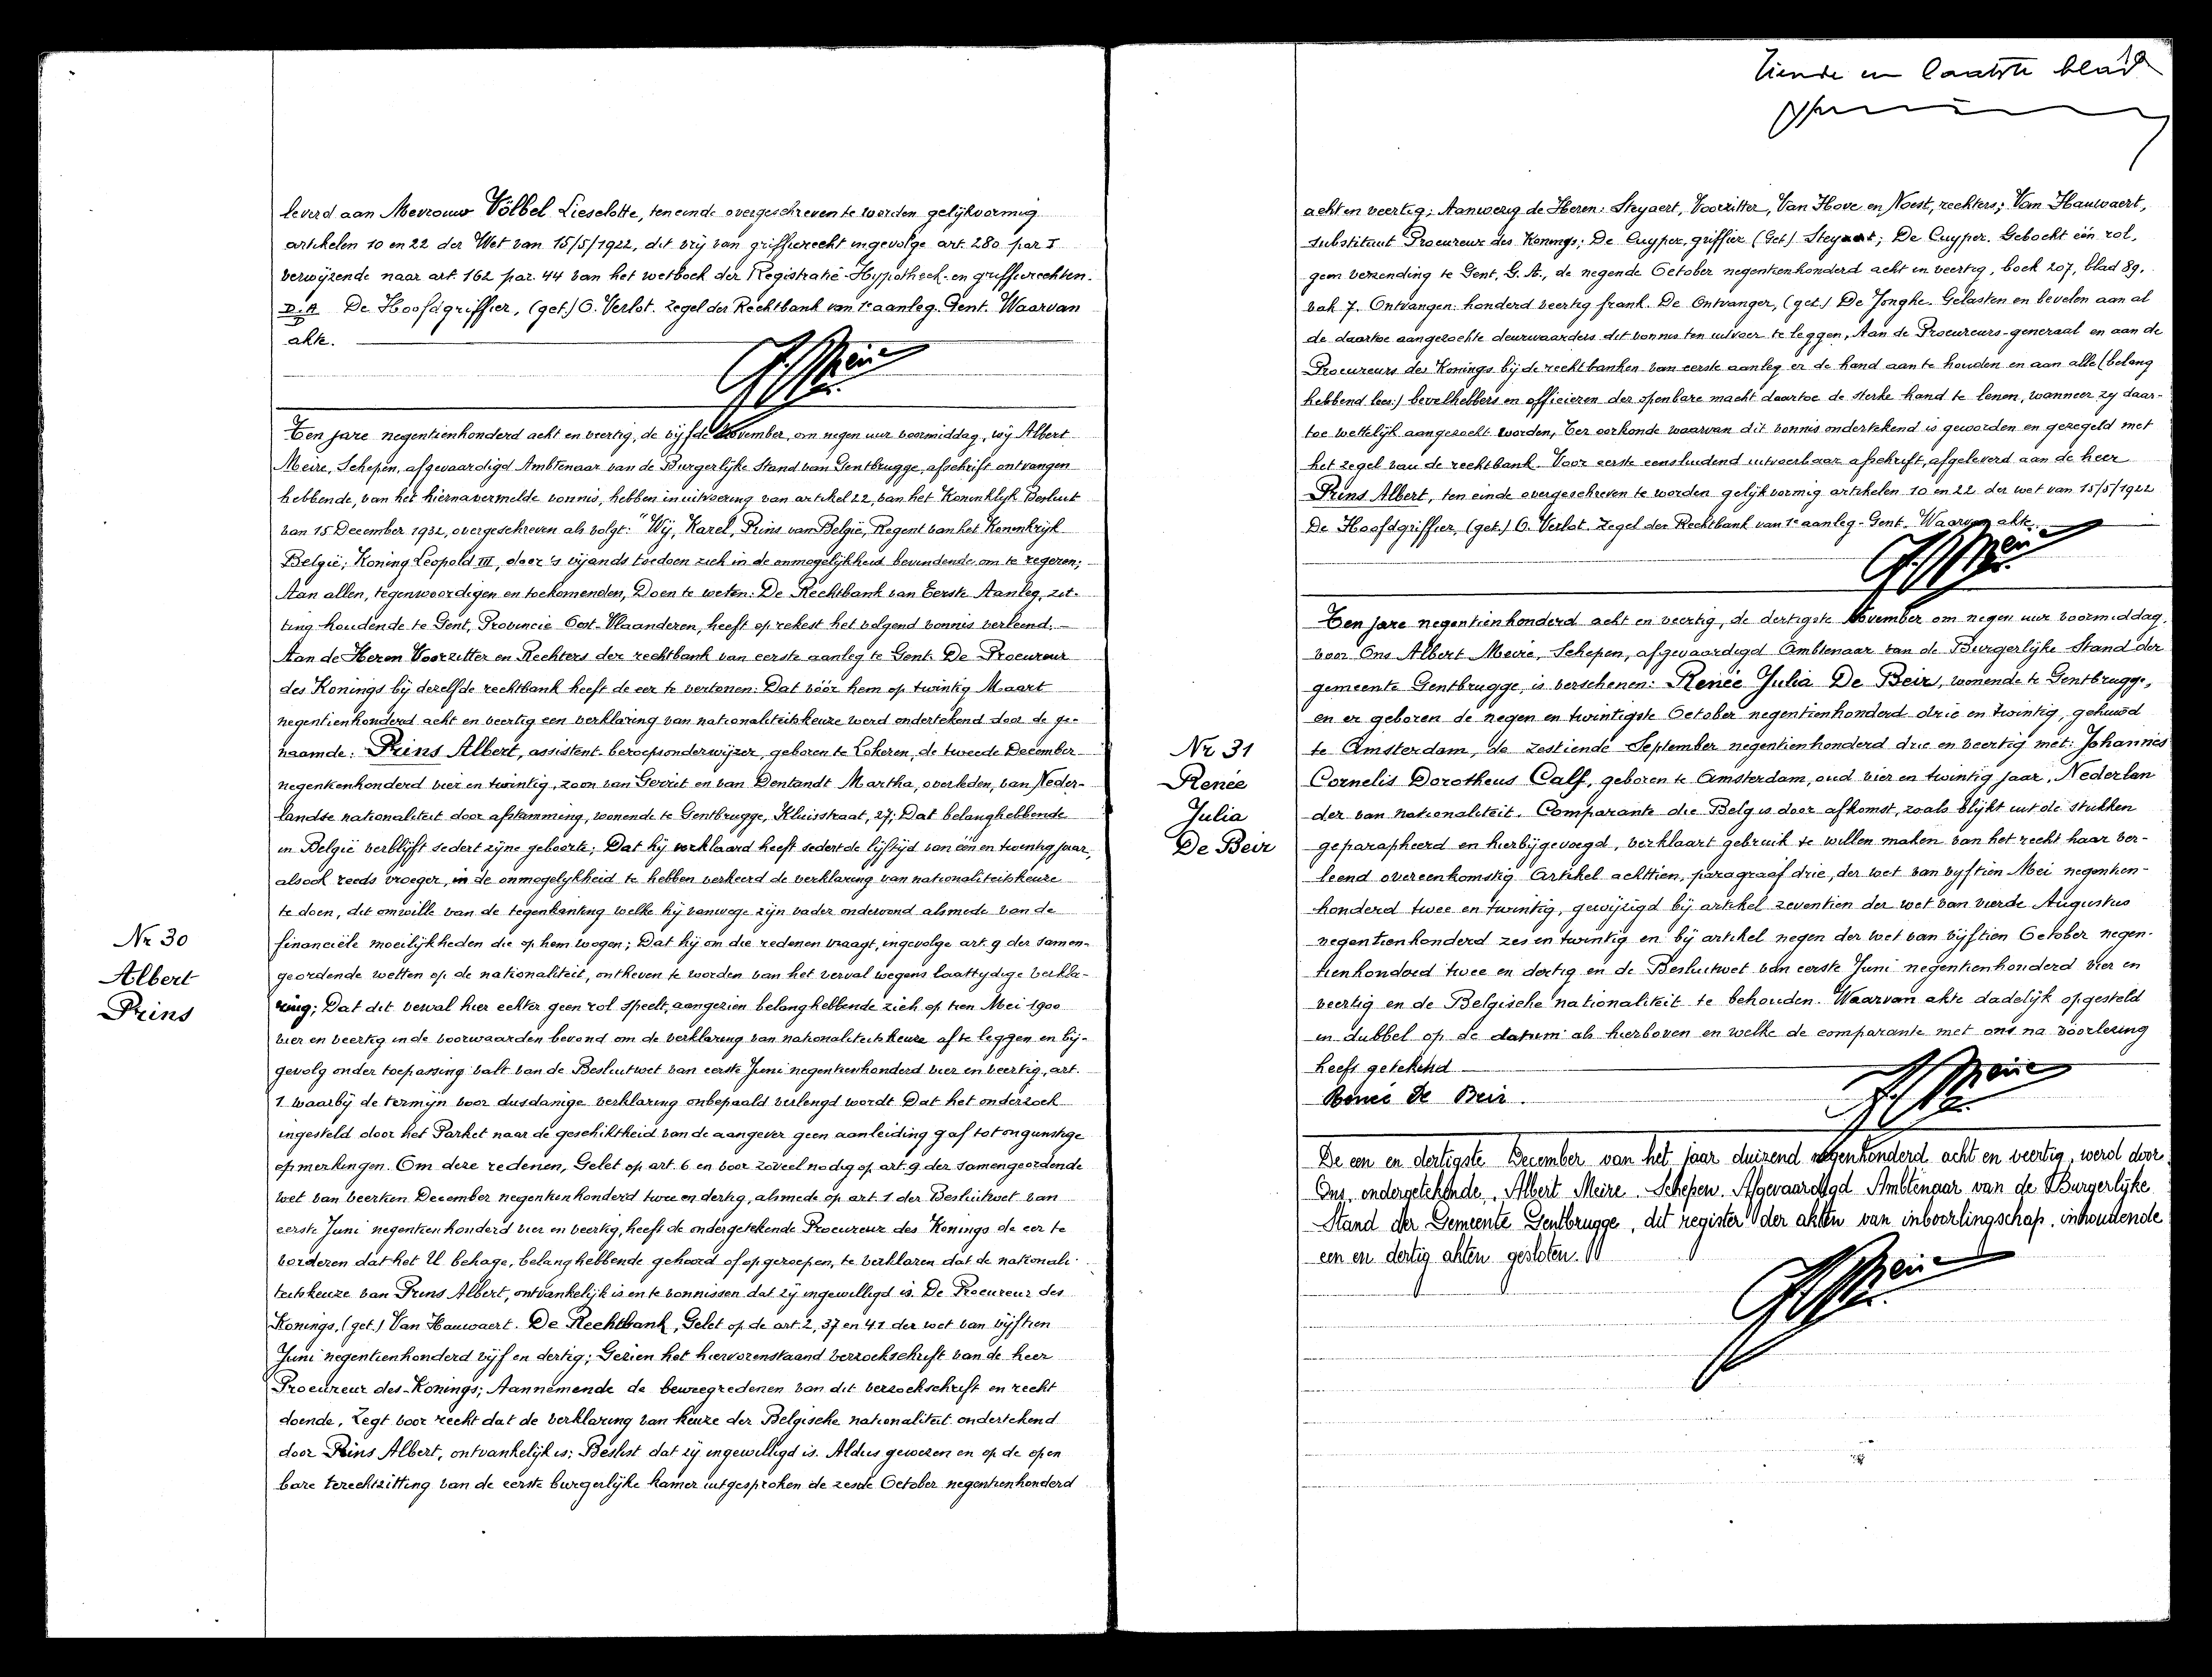 leverd aan Mevrouw Völbel Lieselotte, ten einde overgeschreven te worden gelijkvormig
artikelen 10 en 22 der Wet van 15/5/1922, dit vrij van griffierecht ingevolge art. 280 par I
verwijzende naar art. 162 par. 44 van het wetboek der Registratie-Hypotheek- en griffierechten.
D.A. De Hoofdgriffier, (get.) O. Verlot. zegel der Rechtbank van 1e aanleg. Gent. Waarvan
akte.
Ten jare negentienhonderd acht en veertig, de vijfde November, om negen uur voormiddag, wij Albert
Meire, Schepen, afgevaardigd Ambtenaar van de Burgerlijke Stand van Gentbrugge, afschrift ontvangen
hebbende, van het hiernavermelde vonnis, hebben in uitvoering van artikel 22, van het Koninklijk Besluit
van 15 December 1932, overgeschreven als volgt: "Wij, Karel, Prins van België, Regent van het Koninkrijk
België; Koning Leopold III, door 's vijands toedoen zich in de onmogelijkheid bevindende om te regeren;
Aan allen, tegenwoordigen en toekomenden, Doen te weten: De Rechtbank van Eerste Aanleg, zit-
ting houdende te Gent, Provincie Oost-Vlaanderen, heeft op rekest het volgend vonnis verleend. —
Aan de Heren Voorzitter en Rechters der rechtbank van eerste aanleg te Gent. De Procureur
des Konings bij dezelfde rechtbank heeft de eer te vertonen: Dat vóór hem op twintig Maart
negentienhonderd acht en veertig een verklaring van nationaliteitskeuze werd ondertekend door de ge-
naamde: Prins Albert, assistent-beroepsonderwijzer, geboren te Lokeren, de tweede December
negentienhonderd vier en twintig, zoon van Gerrit en van Dentandt Martha, overleden, van Neder-
landse nationaliteit door afstamming, wonende te Gentbrugge, Kluisstraat, 27; Dat belanghebbende
in België verblijft sedert zijne geboorte; Dat hij verklaard heeft sedert de lijftijd van één en twintig jaar,
alsook reeds vroeger, in de onmogelijkheid te hebben verkeerd de verklaring van nationaliteitskeuze
te doen, dit omwille van de tegenkanting welke hij vanwege zijn vader ondervond alsmede van de
Nr 30
Albert
Prins
financiële moeilijkheden die op hem wogen; Dat hij om die redenen vraagt, ingevolge art. 9 der samen-
geordende wetten op de nationaliteit, ontheven te worden van het verval wegens laattijdige verkla-
ring; Dat dit verval hier echter geen rol speelt, aangezien belanghebbende zich op tien Mei 1900
vier en veertig in de voorwaarden bevond om de verklaring van nationaliteitskeuze af te leggen en bij-
gevolg onder toepassing valt van de Besluitwet van eerste Juni negentienhonderd vier en veertig, art.
1 waarbij de termijn voor dusdanige verklaring onbepaald verlengd wordt. Dat het onderzoek
ingesteld door het Parket naar de geschiktheid van de aangever geen aanleiding gaf tot ongunstige
opmerkingen. Om deze redenen, Gelet op art. 6 en voor zoveel nodig op art. 9 der samengeordende
wet van veertien December negentienhonderd twee en dertig, alsmede op art. 1 der Besluitwet van
eerste Juni negentienhonderd vier en veertig, heeft de ondergetekende Procureur des Konings de eer te
vorderen dat het U behage, belanghebbende gehoord of opgeroepen, te verklaren dat de nationali-
teitskeuze van Prins Albert, ontvankelijk is en te vonnissen dat zij ingewilligd is. De Procureur des
Konings, (get.) Van Hauwaert. De Rechtbank, Gelet op de art. 2, 37 en 41 der wet van vijftien
Juni negentienhonderd vijf en dertig; Gezien het hiervorenstaand verzoekschrift van de heer
Procureur des Konings; Aannemende de beweegredenen van dit verzoekschrift en recht
doende, Zegt voor recht dat de verklaring van keuze der Belgische nationaliteit ondertekend
door Prins Albert, ontvankelijk is; Beslist dat zij ingewilligd is. Aldus gewezen en op de open
bare terechtzitting van de eerste burgerlijke kamer uitgesproken de zesde October negentienhonderd
Tiende en laatste blad
10
acht en veertig; Aanwezig de Heren: Steyaert, Voorzitter, Van Hove en Noest, rechters; Van Hauwaert,
substituut Procureur des Konings; De Cuyper, griffier (Get) Steyaert; De Cuyper. Geboekt één rol,
geen verzending te Gent, G. A., de negende October negentienhonderd acht en veertig, boek 207, blad 89,
vak 7. Ontvangen: honderd veertig frank. De Ontvanger, (get.) De Jonghe. Gelasten en bevelen aan al
de daartoe aangezochte deurwaarders dit vonnis ten uitvoer te leggen, Aan de Procureurs-generaal en aan de
Procureurs des Konings bij de rechtbanken van eerste aanleg er de hand aan te houden en aan alle (belang
hebbend lees:) bevelhebbers en officieren der openbare macht daartoe de sterke hand te lenen, wanneer zij daar-
toe wettelijk aangezocht worden, Ter oorkonde waarvan dit vonnis ondertekend is geworden en gezegeld met
het zegel van de rechtbank. Voor eerste eensluidend uitvoerbaar afschrift, afgeleverd aan de heer
Prins Albert, ten einde overgeschreven te worden gelijkvormig artikelen 10 en 22 der wet van 15/5/1922
De Hoofdgriffier, (get.) O. Verlot. Zegel der Rechtbank van 1e aanleg-Gent. Waarvan akte.
Ten jare negentienhonderd acht en veertig, de dertigste November om negen uur voormiddag,
voor Ons Albert Meire, Schepen, afgevaardigd Ambtenaar van de Burgerlijke Stand der
gemeente Gentbrugge, is verschenen: Renée Julia De Beir, wonende te Gentbrugge,
en er geboren de negen en twintigste October negentienhonderd drie en twintig, gehuwd
Nr 31
Renée
Julia
De Beir
te Amsterdam, de zestiende September negentienhonderd drie en veertig met: Johannes
Cornelis Dorotheus Calf, geboren te Amsterdam, oud vier en twintig jaar, Nederlan
der van nationaliteit. Comparante die Belg is door afkomst, zoals blijkt uit de stukken
geparapheerd en hierbijgevoegd, verklaart gebruik te willen maken van het recht haar ver-
leend overeenkomstig Artikel achttien, paragraaf drie, der wet van vijftien Mei negentien-
honderd twee en twintig, gewijzigd bij artikel zeventien der wet van vierde Augustus
negentienhonderd zes en twintig en bij artikel negen der wet van vijftien October negen-
tienhonderd twee en dertig en de Besluitwet van eerste Juni negentienhonderd vier en
veertig en de Belgische nationaliteit te behouden. Waarvan akte dadelijk opgesteld
in dubbel op de datum als hierboven en welke de comparante met ons na voorlezing
heeft getekend
Renée De Beir.
De een en dertigste December van het jaar duizend negenhonderd acht en veertig, werd door
Ons, ondergetekende, Albert Meire. Schepen. Afgevaardigd Ambtenaar van de Burgerlijke
Stand der Gemeente Gentbrugge, dit register der akten van inboorlingschap, inhoudende
een en dertig akten gesloten.